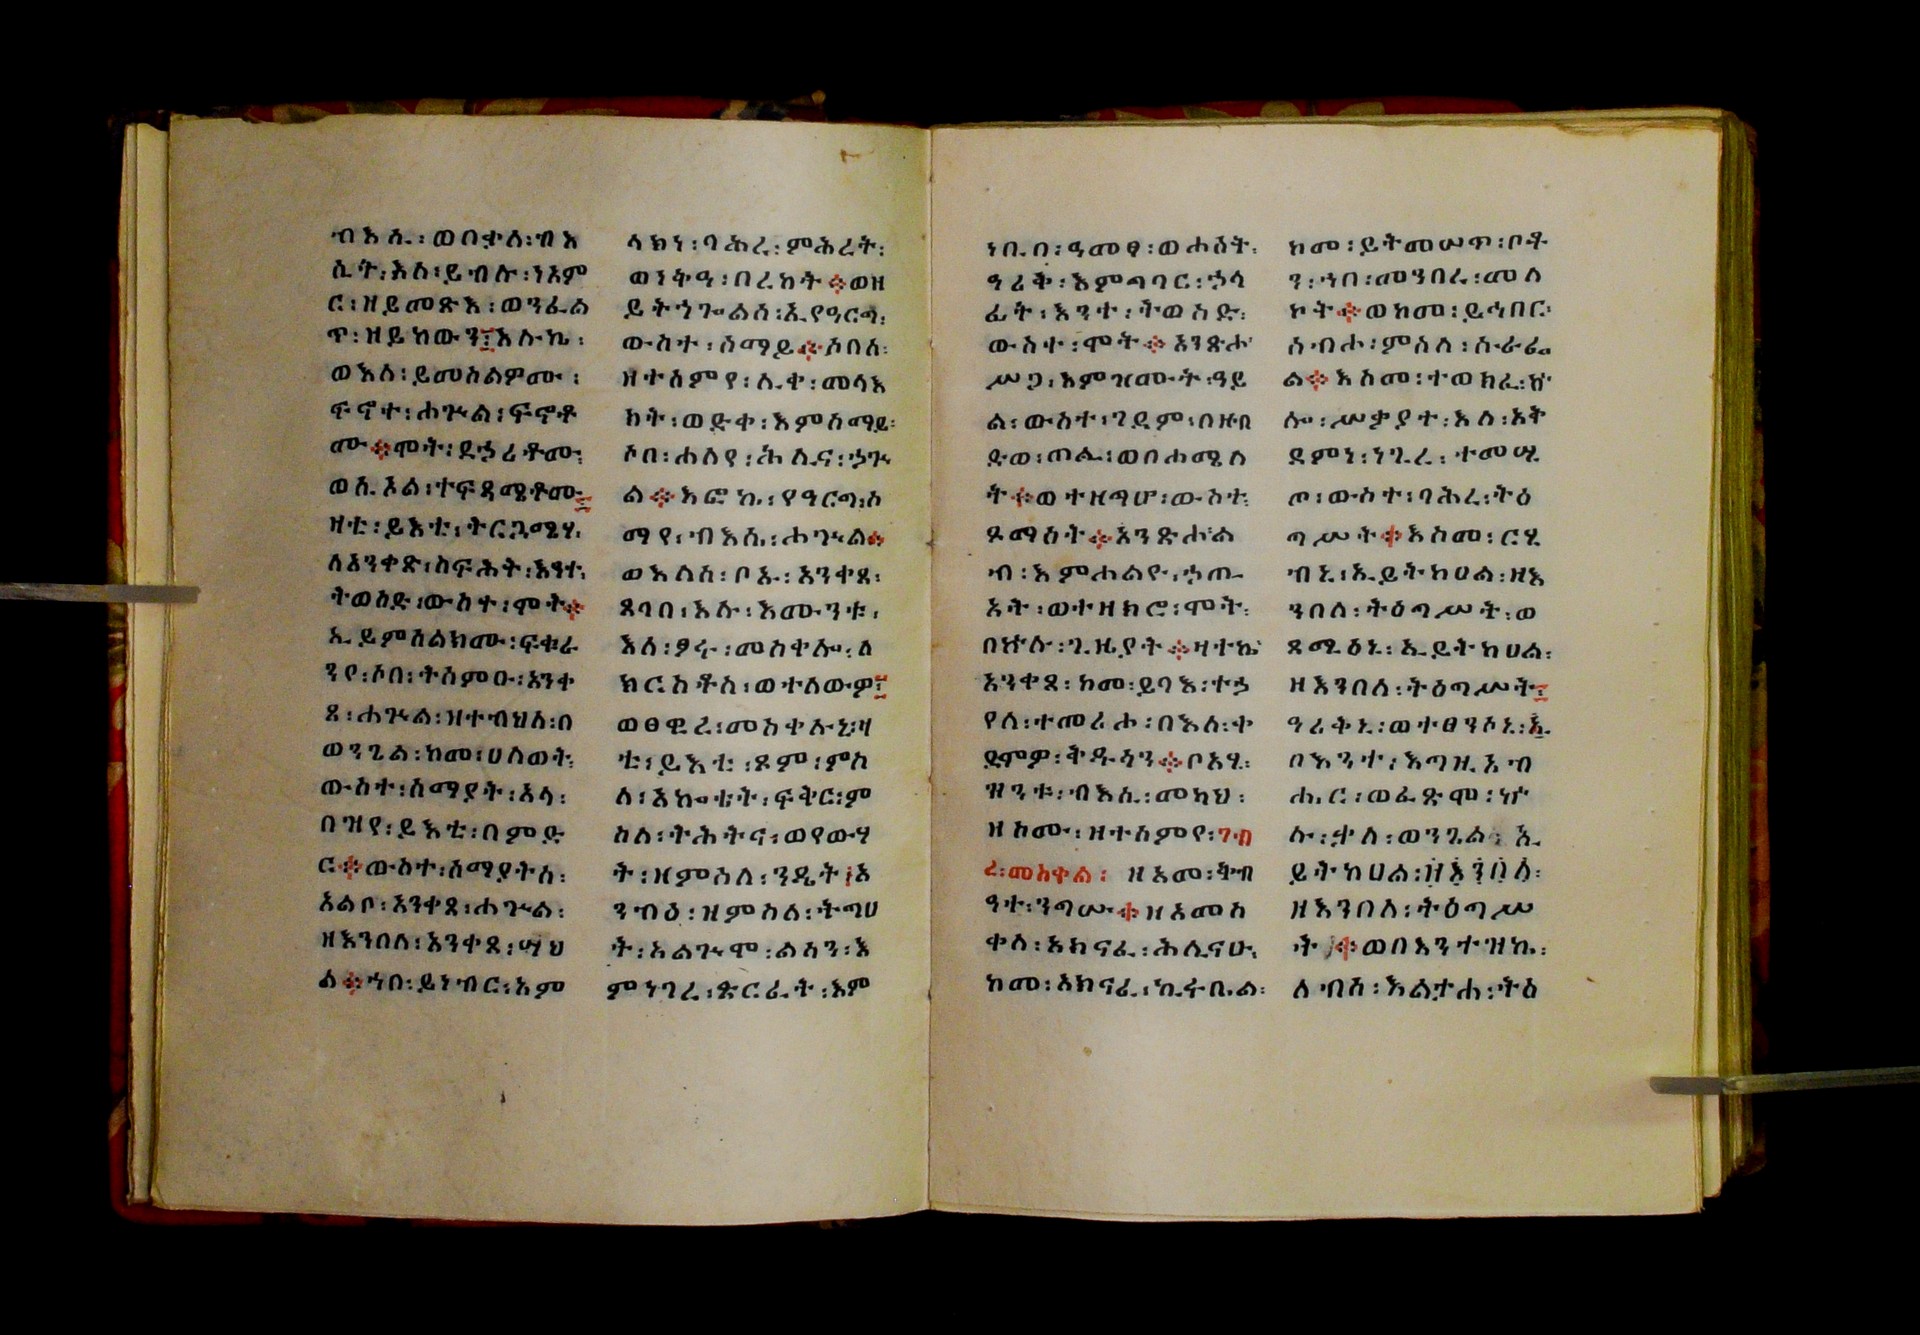 ብእሲ፡ወበቃለ፡ብእ
ሲት፡እስ፡ይብሉ፡ነአም
ር፡ዘይመጽእ፡ወንፌል
ጥ፡ዘይከውን፤እሉኬ፡
ወእለ፡ይመስልዎሙ፡
ፍኖተ፡ሐጕል፡ፍኖቶ
ሙ።ሞት፡ደኃሪቶሙ፡
ወሲኦል፡ተፍጻሜቶሙ፤
ዛቲ፡ይእቲ፡ትርጓሜሃ፡
ለአንቀጽ፡ስፍሕት፡እንተ፡
ትወስድ፡ውስተ፡ሞት።
ኢይምሰልክሙ፡ፍቁራ
ንየ፡ሶበ፡ትሰምዑ፡አንቀ
ጸ፡ሐጕል፡ዘተብህለ፡በ
ወንጌል፡ከመ፡ሀለወት፡
ውስተ፡ሰማያት፡አላ፡
በዝየ፡ይእቲ፡በምድ
ር።ውስተ፡ሰማያትሰ፡
አልቦ፡አንቀጸ፡ሐጕል፡
ዘእንበለ፡አንቀጸ፡ሣህ
ል።ኀበ፡ይነብር፡አም
ላክነ፡ባሕረ፡ምሕረት፡
ወነቅዓ፡በረከት።ወዘ
ይትኀጐልሰ፡ኢየዓርግ፡
ውስተ፡ሰማይ።ሶበሰ፡
ዘተሰምየ፡ሊቀ፡መላእ
ክት፡ወድቀ፡እምሰማይ፡
ሶበ፡ሐለየ፡ሕሊና፡ኃጕ
ል።እፎኬ፡የዓርግ፡ሰ
ማየ፡ብእሲ፡ሐጕል።
ወእለሰ፡ቦኡ፡አንቀጸ፡
ጸባበ፡እሉ፡እሙንቱ፡
እለ፡ፆሩ፡መስቀሎ፡ለ
ክርስቶስ፡ወተለውዎ፤
ወፀዊረ፡መስቀሉኒ፡ዛ
ቲ፡ይእቲ፡ጾም፡ምስ
ለ፡አኰቴት፡ፍቅር፡ም
ስለ፡ትሕትና፡ወየውሃ
ት፡ዘምስለ፡ንዴት፡አ
ንብዕ፡ዝምስለ፡ትግሀ
ት፡አልጕሞ፡ልሳን፡እ
ምነገረ፡ጽርፈት፡እም
ነቢበ፡ዓመፃ፡ወሐሰት፡
ዓሪቅ፡እምግባር፡ኃሳ
ፊት፡እንተ፡ትወስድ፡
ውስተ፡ሞት።አንጽሖ
ሥጋ፡እምዝሙት፡ዓይ
ል፡ውስተ፡ገዳም፡በዙበ
ድወ፡ጠሊ፡ወበሐሜለ
ት።ወተዘግሆ፡ውስተ፡
ጾማዕት።አንጽሖል
ብ፡እምሐልዮ፡ኃጢ
አት፡ወተዘክሮ፡ሞት፡
በኵሉ፡ጊዜያት።ዛተኬ
አንቀጸ፡ከመ፡ይባእ፡ተኃ
የለ፡ተመሪሖ፡በእለ፡ቀ
ደምዎ፡ቅዱሳን።ቦአሂ፡
ዝንቱ፡ብእሲ፡መካህ፡
ዘከሙ፡ዘተሰምየ፡ገብ
ረ፡መስቀል፡ዘአመ፡ቅብ
ዓተ፡ንግሡ።ዘአመሰ
ቀለ፡አክናፈ፡ሕሊናሁ፡
ከመ፡አክናፈ፡ኪሩቤል፡
ከመ፡ይትመሠጥ፡ቦቶ
ን፡ኀበ፡መንበረ፡መለ
ኮት።ወከመ፡ይኅበር፡
ስብሐ፡ምስለ፡ሱራፌ
ል።እስመ፡ተወክፈ፡ኵ
ሎ፡ሥቃያተ፡እለ፡አቅ
ደምነ፡ነጊረ፡ተመሢ
ጦ፡ውስተ፡ባሕረ፡ትዕ
ግሥት።እስመ፡ርሂ
ብኒ፡ኢይትከሀል፡ዘእ
ንበለ፡ትዕግሥት፡ወ
ጸሚዕኒ፡ኢይትከሀል፡
ዘእንበለ፡ትዕግሥት፤
ዓሪቅኒ፡ወተፀንሶኒ፡ኢ
በእንተ፡እግዚአብ
ሔር፡ወፈጽሞ፡ኵ
ሉ፡ቃለ፡ወንጌል፡ኢ
ይትከሀል፡ዘእንበለ፡
ዘእንበለ፡ትዕግሥ
ት።ወበእንተዝኬ፡
ለብሰ፡እልታሐ፡ትዕ